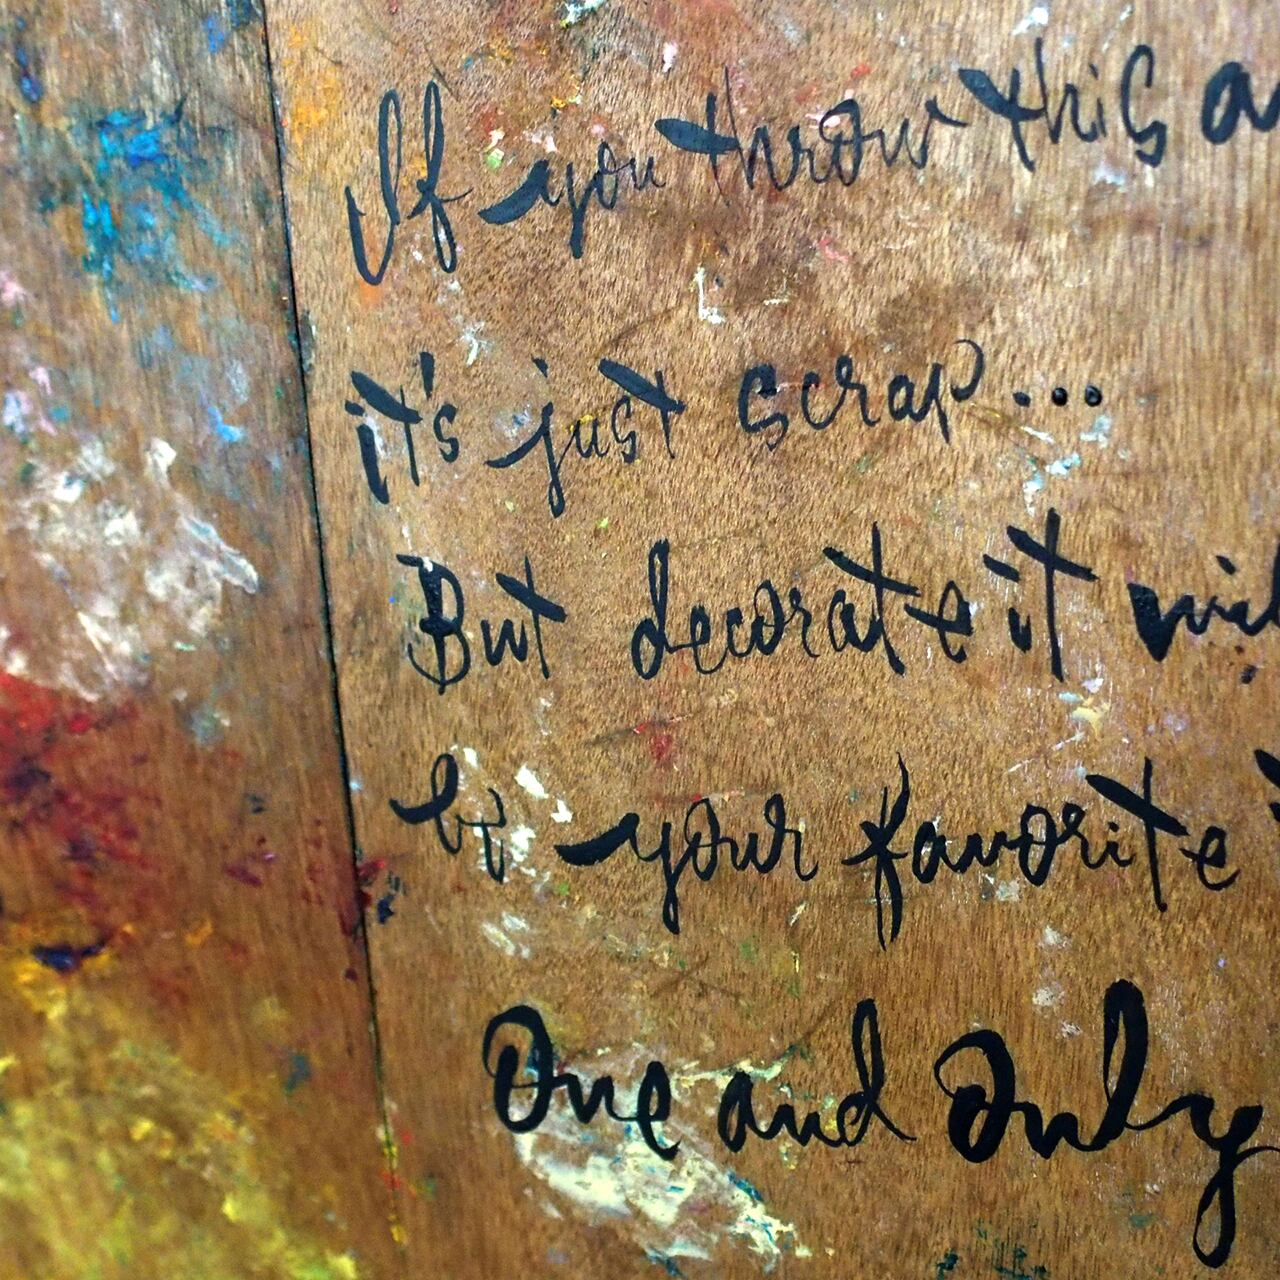 If you throw this a
it's just scrap...
But decorate it wil
be your favorite t
One and Only